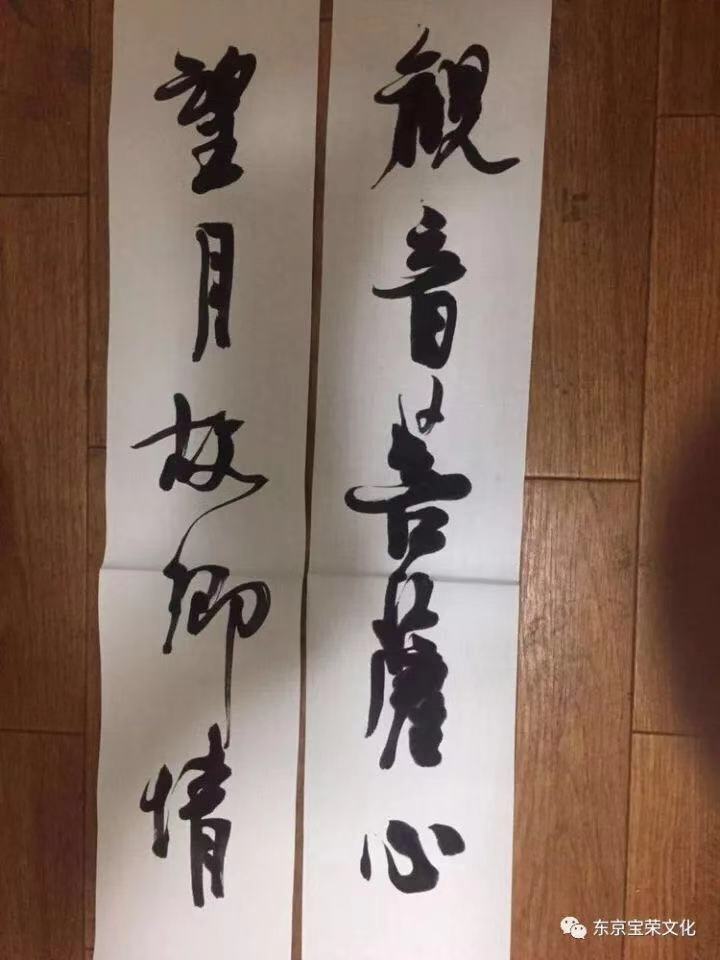 觀音菩薩心
望月故鄉情
东京宝荣文化